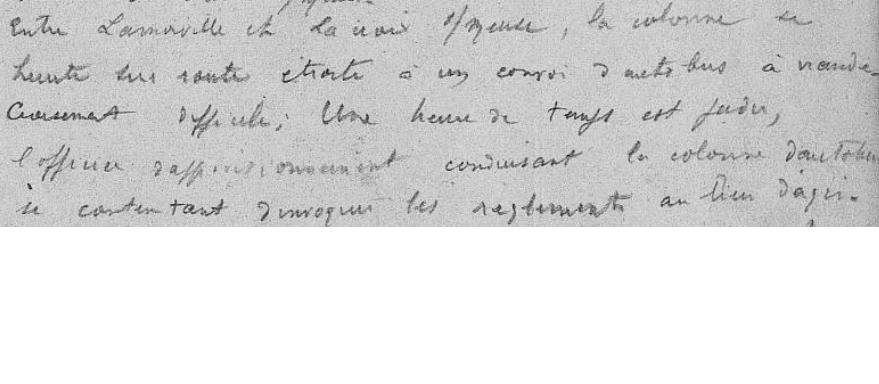 Entre Lamorville et Lacroix s/Meuse, la colonne se
heurte sur route étroite à un convoi d'autobus à viande.
Croisement difficile; Une heure de temps est perdu,
l'officier d'approvisionnement conduisant la colonne d'autobus
se contentant d'invoquer les règlements au lieu d'agir.